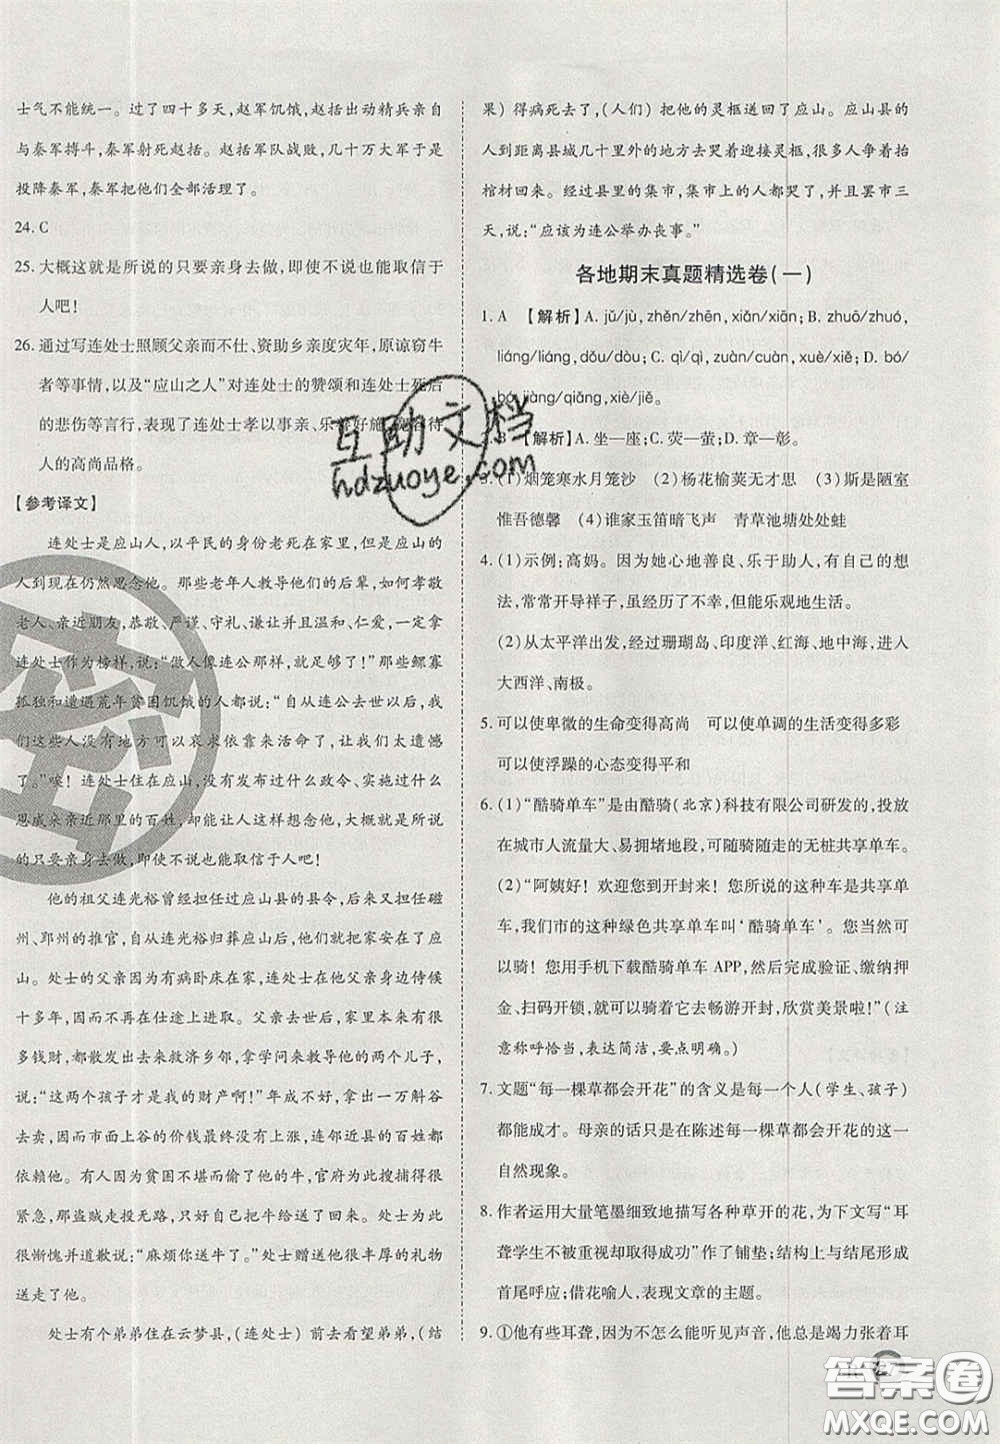 士气不能统一。过了四十多天，赵军饥饿，赵括出动精兵亲自
与秦军搏斗，秦军射死赵括。赵括军队战败，几十万大军于是
投降秦军，秦军把他们全部活埋了。
24. C
25. 大概这就是所说的只要亲身去做，即使不说也能取信于
人吧！
26. 通过写连处士照顾父亲而不仕、资助乡亲度灾年、原谅窃牛
者等事情，以及“应山之人”对连处士的赞颂和连处士死后
的悲伤等言行，表现了连处士孝以事亲、乐善好施、宽容待
人的高尚品格。
【参考译文】
连处士是应山人，以平民的身份老死在家里，但是应山的
人到现在仍然思念他。那些老年人教导他们的后辈，如何孝敬
老人、亲近朋友，恭敬、严谨、守礼、谦让并且和、仁爱，一定要拿
连处士作为榜样，说：“做人像连公那样，就足够了！”那些鳏寡
孤独和遭遇荒年贫困饥饿的人都说：“自从连公去世以来，我
们这些人没有地方可以哀求依靠来活命，让我们太遗憾
了。”唉！连处士住在应山，没有发布过什么政令、实施过什么
恩威来亲近那里的百姓，如何让人这样想念他，大概就是所说
的只要亲身去做，即使不说也能取信于人吧！
他的祖父连光裕曾经担任过应山县的县令，后来又担任磁
州、郢州的推官，自从连光裕归葬应山后，他们就把家安在了应
山。处士的父亲因为有病卧床在家里，连处士在他父亲身边侍候
十多年，因而不再在仕途上进取。父亲去世后，家里本来有很
多钱财，都散发出来救济乡邻，拿学问来教导他的两个儿子，
说：“这两个孩子才是我的财产啊！”年成不好，拿出一万斛谷
去卖，因而市面上谷的价钱最终没有上涨，连邻近县的百姓都
依赖他。有人因为贫困不堪而偷了他的牛，官府为此搜捕得很
紧急，那盗贼走投无路，只得自己把牛给送了回来。处士为此
很惭愧并道歉说：“麻烦你送牛了。”处士赠送他很丰厚的礼物
送走了他。
处士有个弟弟住在云梦县，（连处士）前去看望弟弟，（结
果）得病死去了，（人们）把他的灵柩送回了应山。应山县的
人到距离县城几十里外的地方去哭着迎接灵柩，很多人争着抬
棺材回来。经过县里的集市，集市上的人都哭了，并且罢市三
天，说：“应该为连公举办丧事。”
各地期末真题精选卷（一）
1. A 【解析】A. jǔ/jù，zhěn/zhēn，xiān/xiān；B. zhuō/zhuó，
liáng/liáng，dǒu/dòu；C. qì/qì，zuàn/cuàn，xuè/xiě；D. bó/
bó，jiàng/qiǎng，xiè/jiě。
B 【解析】A. 坐—座；C. 荧—萤；D. 章—彰。
3. (1)烟笼寒水月笼沙 (2)杨花榆荚无才思 (3)斯是陋室
惟吾德馨 (4)谁家玉笛暗飞声 青草池塘处处蛙
4. (1)示例：高妈。因为她心地善良、乐于助人，有自己的想
法，常常开导祥子，虽经历了不幸，但能乐观地生活。
(2)从太平洋出发，经过珊瑚岛、印度洋、红海、地中海，进入
大西洋、南极。
5. 可以使卑微的生命变得高尚 可以使单调的生活变得多彩
可以使浮躁的心态变得平和
6. (1)“酷骑单车”是由酷骑（北京）科技有限公司研发的，投放
在城市人流量大、易拥堵地段，可随骑随走的无桩共享单车。
(2)“阿姨好！欢迎您到开封来！您所说的这种车是共享单
车，我们市的这种绿色共享单车叫‘酷骑单车’。您当然可
以骑！您用手机下载酷骑单车 APP，然后完成验证、缴纳押
金、扫码开锁，就可以骑着它去畅游开封，欣赏美景啦！”（注
意称呼恰当，表达简洁，要点明确。）
7. 文题“每一棵草都会开花”的含义是每一个人（学生、孩子）
都能成才。母亲的话只是在陈述每一棵草都会开花的这一
自然现象。
8. 作者运用大量笔墨细致地描写各种草开的花，为下文写“耳
聋学生不被重视却同样取得成功”作了铺垫；结构上与结尾
首尾呼应；借花喻人，表现文章的主题。
9. ①他有些耳聋，因为不怎么能听见声音，他总是竭力张着耳
互助文档
hdzuoye.com
答案圈
MXQE.COM